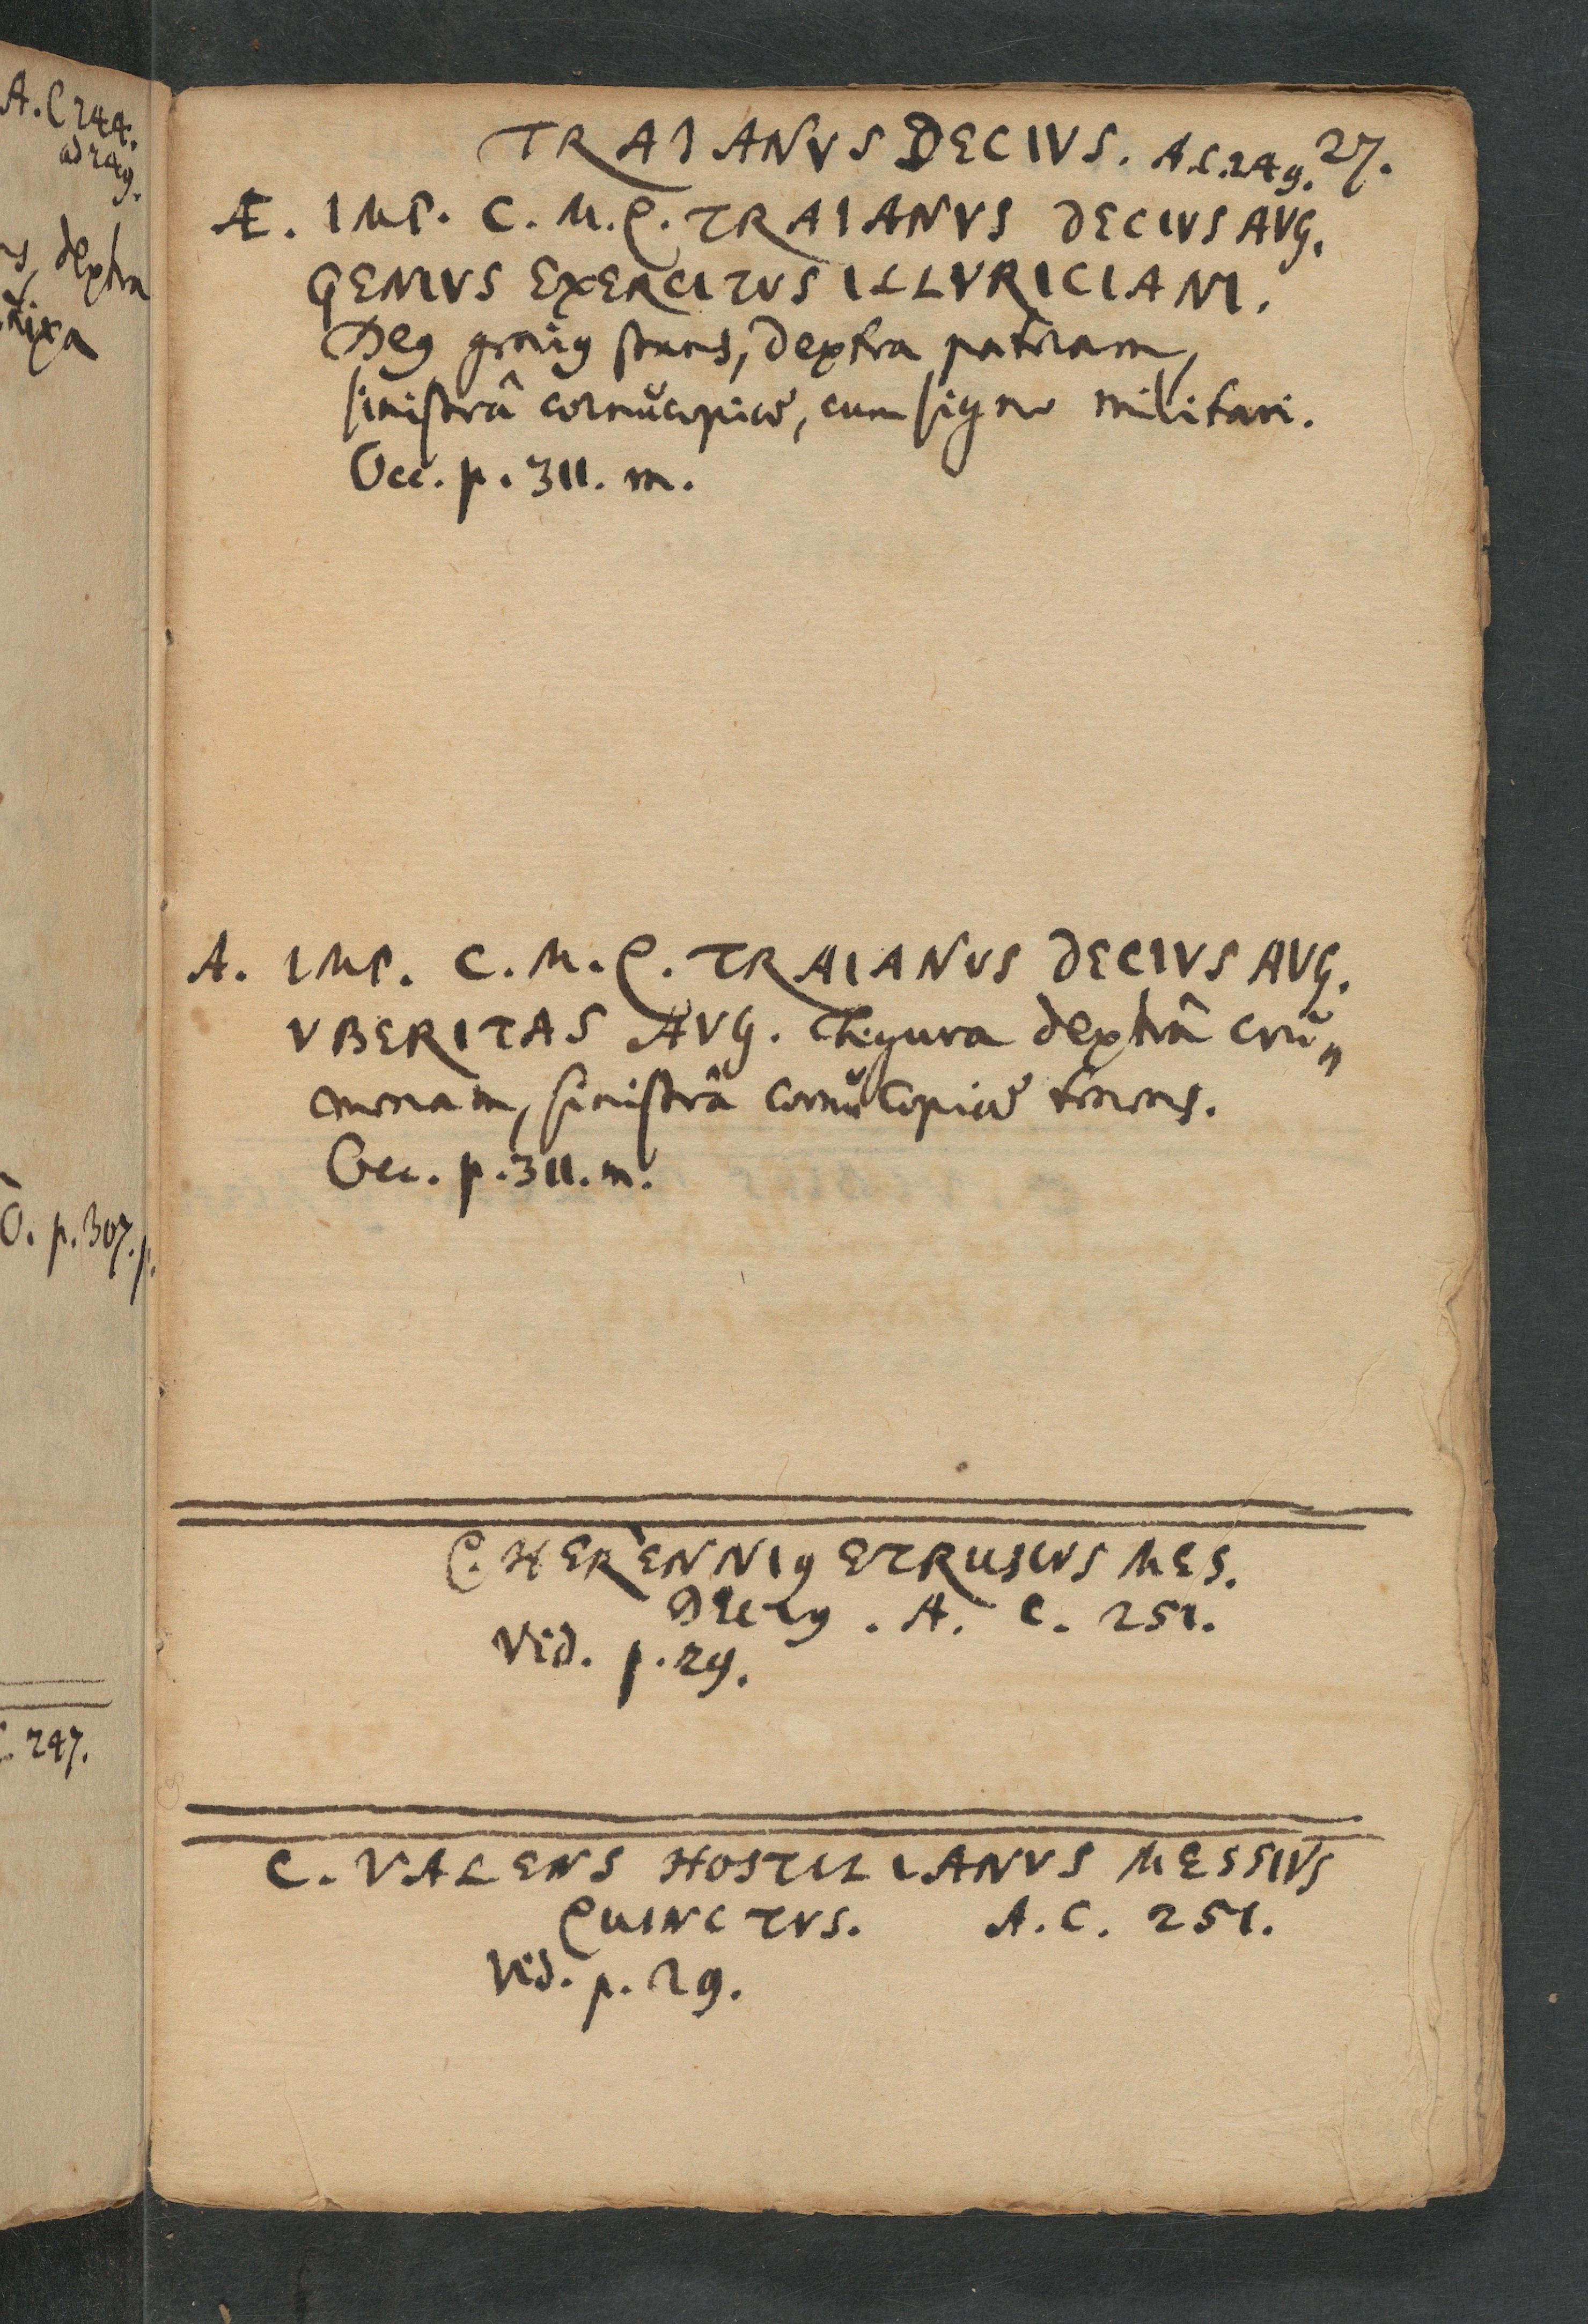 A. C 244.
ad 249.
dextra
nixa
O. p. 307. p.
C. 247.
TRAIANVS DECIVS. A.C. 249. 27.
Æ. IMP. C. M. Q. TRAIANVS DECIVS AVG.
GENIVS EXERCITVS ILLVRICIANI.
Deꝰ geniꝰ stans, dextra pateram,
sinistrâ cornŭcopiæ, cum signo militari.
Occ. p. 311. m.
A. IMP. C. M. Q. TRAIANVS DECIVS AVG.
VBERITAS AVG. Figura dextrâ crŭ„
menam, sinistrâ cornŭcopiæ tenens.
Occ. p. 311. m.
Q. HERENNIꝰ ETRUSCVS MES.
DECIꝰ. A. C. 251.
Vid. p. 29.
C. VALENS HOSTILIANVS MESSIVS
QUINCTVS. A. C. 251.
Vid. p. 29.